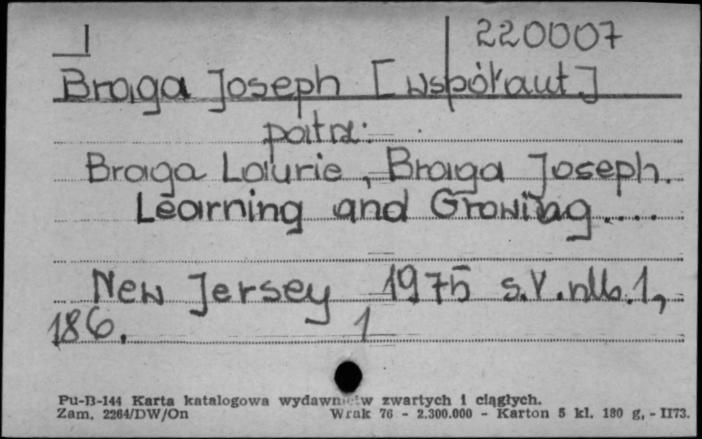 1 220007
Braga Joseph [współaut]
patrz:
Braga Laurie, Braga Joseph.
Learning and Growing....
New Jersey 1975 s.V.nlb.1,
186. 1
Pu-B-144 Karta katalogowa wydawnictw zwartych i ciągłych.
Zam. 2264/DW/On Wrak 76 - 2.300.000 - Karton 5 kl. 180 g, - II73.